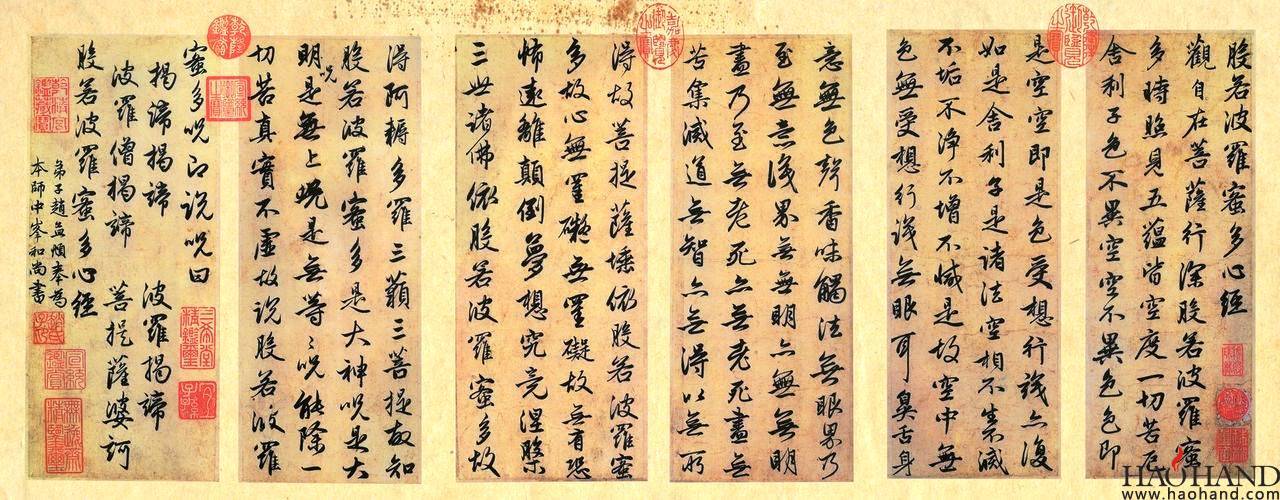 般若波羅蜜多心經
觀自在菩薩行深般若波羅蜜
多時照見五蘊皆空度一切苦厄
舍利子色不異空空不異色色即
是空空即是色受想行識亦復
如是舍利子是諸法空相不生滅
不垢不淨不增不減是故空中無
色無受想行識無眼耳鼻舌身
意無色聲香味觸法無眼界乃
至無意識界無無明亦無無明
盡乃至無老死亦無老死盡無
苦集滅道無智亦無得以無所
得故菩提薩埵依般若波羅蜜
多故心無罣礙無罣礙故無有恐
怖遠離顛倒夢想究竟涅槃
三世諸佛依般若波羅蜜多故
得阿耨多羅三藐三菩提故知
般若波羅蜜多是大神呪是大
明呪是無上呪是無等等呪能除一
切苦真實不虛故說般若波羅
蜜多呪即說呪曰
揭諦揭諦 波羅揭諦
波羅僧揭諦 菩提薩婆訶
般若波羅蜜多心經
弟子趙孟頫奉為
本師中峯和尚書
HAOHAND
www.haohand.com